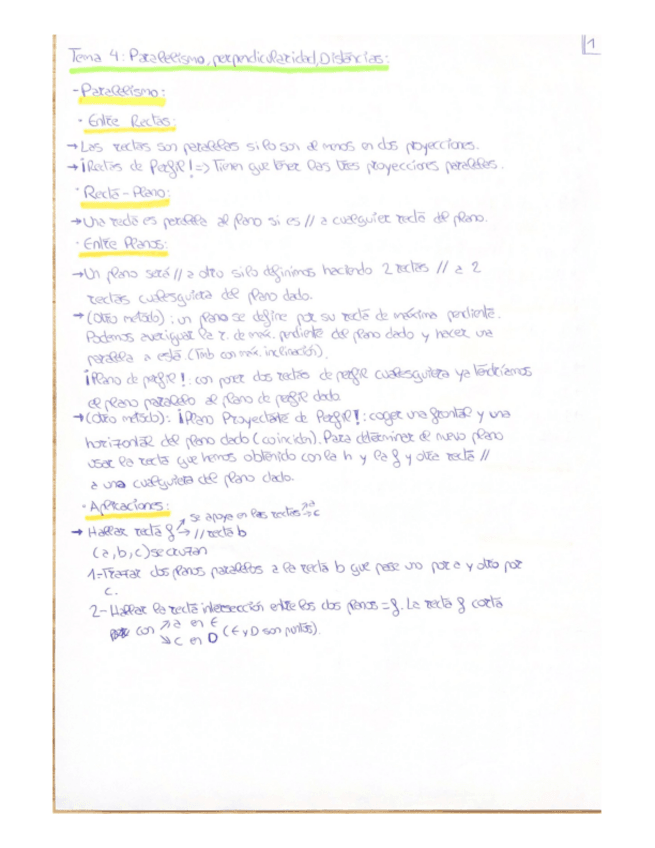 1
Tema 4: Paralelismo, perpendicularidad, Distancias:
- Paralelismo:
· Entre Rectas:
→ Las rectas son paralelas si lo son al menos en dos proyecciones.
→ ¡Rectas de Perfil! => Tienen que tener las tres proyecciones paralelas.
· Recta - Plano:
→ Una recta es paralela al plano si es // a cualquier recta del plano.
· Entre Planos:
→ Un plano será // a otro si lo definimos haciendo 2 rectas // a 2
rectas cualesquiera del plano dado.
→ (Otro método): un plano se define por su recta de máxima pendiente.
Podemos averiguar la r. de máx. pendiente del plano dado y hacer una
paralela a está. (Tmb con máx. inclinación).
¡Plano de perfil!: con poner dos rectas de perfil cualesquiera ya tendríamos
el plano paralelo al plano de perfil dado.
→ (Otro método): ¡Plano Proyectante de Perfil!: coger una frontal y una
horizontal del plano dado (coinciden). Para determinar el nuevo plano
usar la recta que hemos obtenido con la h y la f y otra recta //
a una cualquiera del plano dado.
· Aplicaciones:
→ Hallar recta f ↗ se apoya en las rectas ↗ a → c
→ // recta b
(a, b, c) se cruzan
1- Trazar dos planos paralelos a la recta b que pase uno por a y otro por
c.
2- Hallar la recta intersección entre los dos planos = f. La recta f corta
con ↗ a en E
↘ c en D (E y D son puntos).